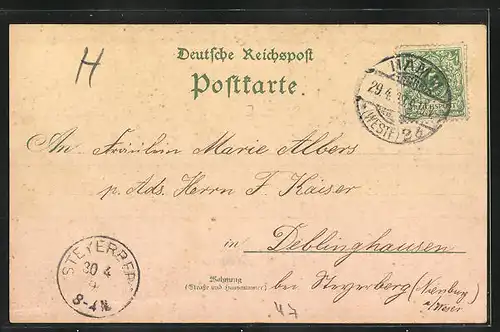 H
Deutsche Reichspost
Postkarte.
29.4.
(WESTF)
An Fräulein Marie Albers
p. Ads. Herrn F. Kaiser
in Deblinghausen
STEYERBERG
30 4
8-9 N.
Wohnung
(Straße und Hausnummer)
bei Steyerberg (Nienburg
a/Weser
47